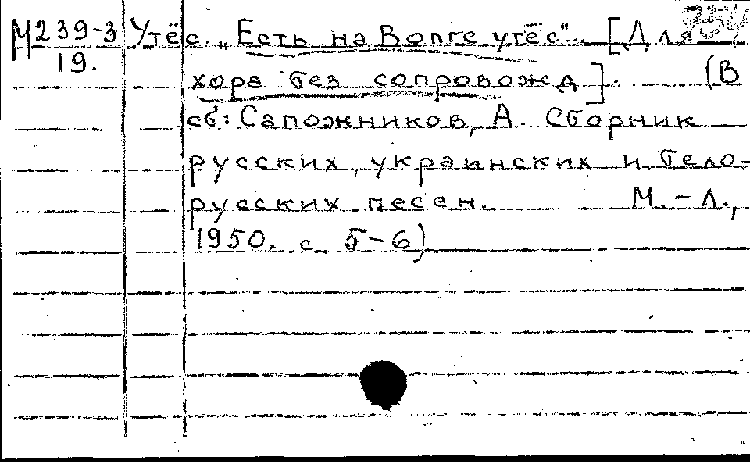 М239-3 Утёс. „Есть на Волге утёс". [Для
19. хора без сопровожд]. (В
сб: Сапожников, А. Сборник
русских, украинских и бело-
русских песен. М.-Л.,
1950. с. 5-6)